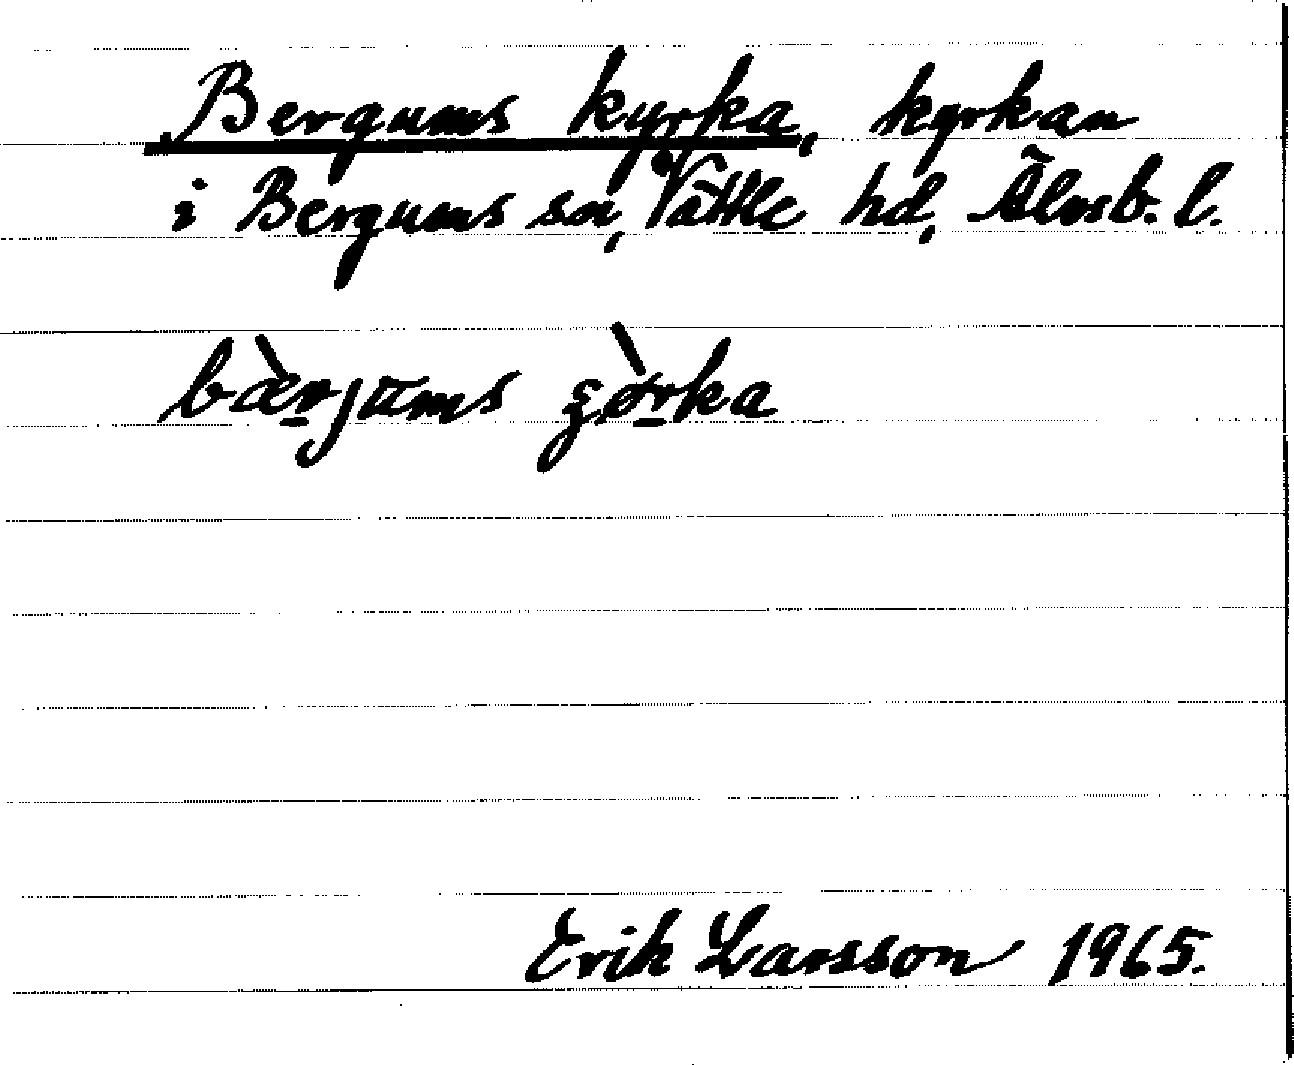 Bergums kyrka, kyrkan
i Bergums sn, Vättle hd, Älvsb. l.
bæ̀rjums çø̀rka
Erik Larsson 1965.